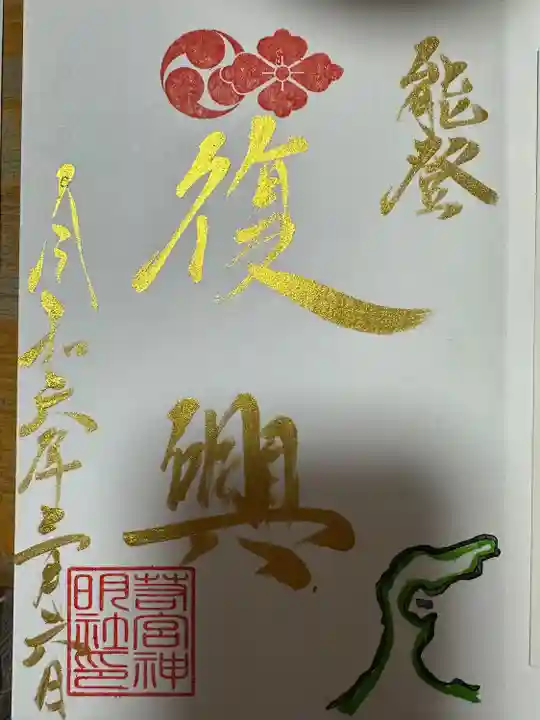 能登
復興
令和六年三月六日
苔宮神
明社印